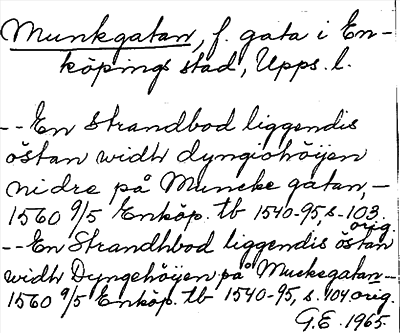 Munkgatan, f. gata i En-
köpings stad, Upps. l.
-- En Strandbod liggendis
östan widh dyngiohöijen
nidre på Muncke gatan, -
1560 9/5 Enköp. tb 1540-95, s. 103
orig.
-- En Strandhbod liggendis östan
widh Dyngehöijen på Munkegatan -
1560 9/5 Enköp. tb 1540-95, s. 104 orig.
G.E. 1965.